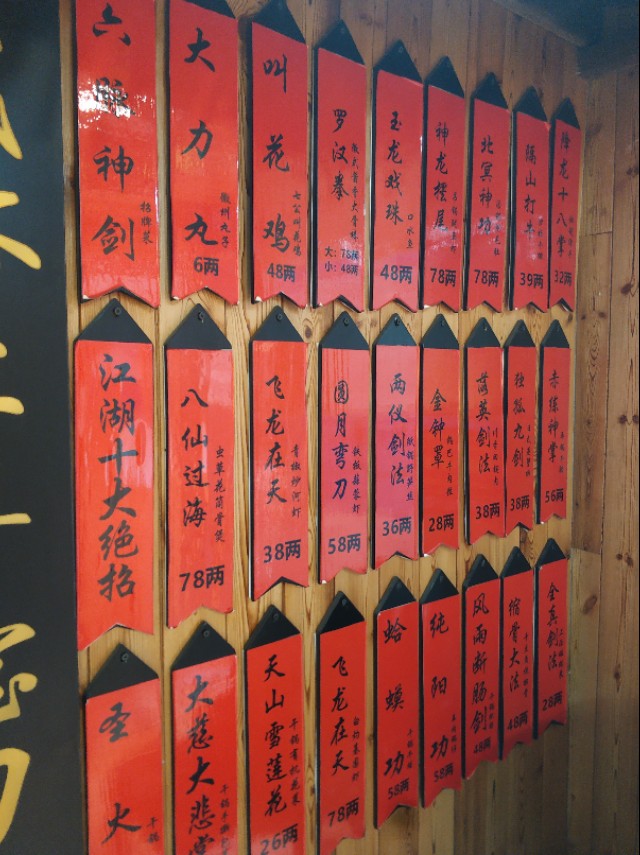 六脉神剑
招牌菜
大力丸
徽州丸子
6两
叫花鸡
七公叫花鸡
48两
罗汉拳
徽式酱香大骨棒
大:78两
小:48两
玉龙戏珠
口水鱼
48两
神龙摆尾
78两
北冥神功
78两
隔山打牛
39两
降龙十八掌
32两
江湖十大绝招
八仙过海
虫草花筒骨煲
78两
飞龙在天
青椒炒河虾
38两
圆月弯刀
铁板蒜蓉虾
58两
两仪剑法
酸锅野笋丝
36两
金钟罩
28两
落英剑法
38两
独孤九剑
38两
赤练神掌
56两
圣火
干锅
大慈大悲掌
天山雪莲花
干锅有机花菜
26两
飞龙在天
白灼基围虾
78两
蛤蟆功
干锅牛蛙
58两
纯阳功
58两
风雨断肠剑
48两
缩骨大法
48两
全真剑法
28两